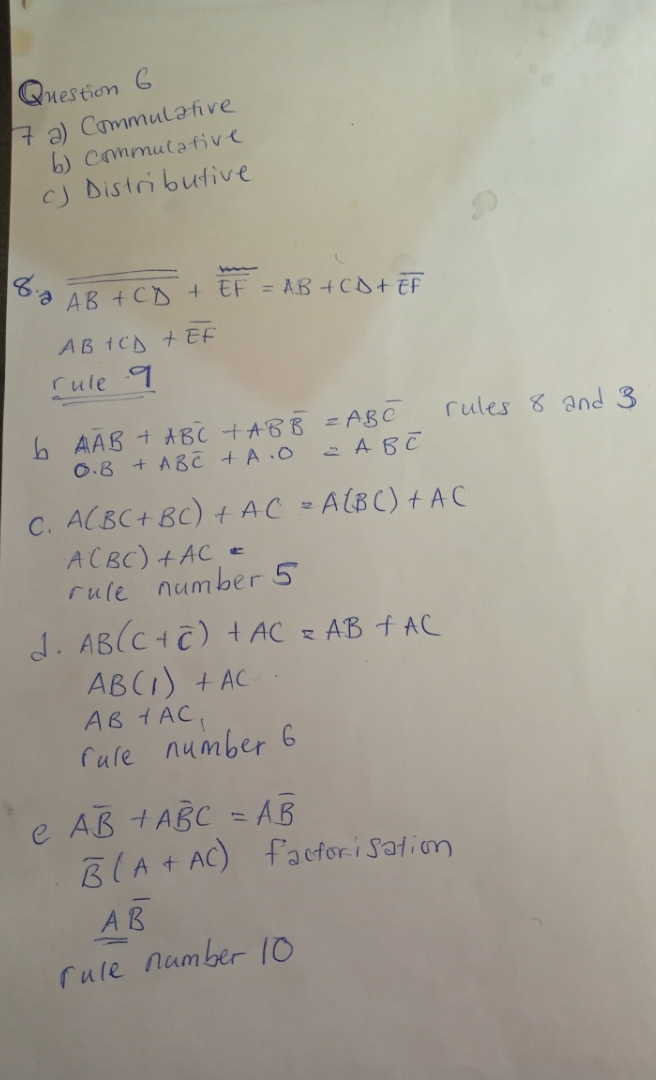 Question 6
7 a) Commulative
b) Commulative
c) Distributive
8.a A̿B̿ ̿+̿ ̿C̿D̿ + E̅F̅ = AB + CD + E̅F̅
AB + CD + E̅F̅
rule 9
b AA̅B + ABC̅ + ABB̅ = ABC̅ rules 8 and 3
O.B + ABC̅ + A.O = ABC̅
C. A(BC+BC) + AC = A(BC) + AC
A(BC) + AC =
rule number 5
d. AB(C + C̅) + AC = AB + AC
AB(1) + AC
AB + AC,
rule number 6
e AB̅ + AB̅C = AB̅
B̅(A + AC) factorisation
AB̅
rule number 10